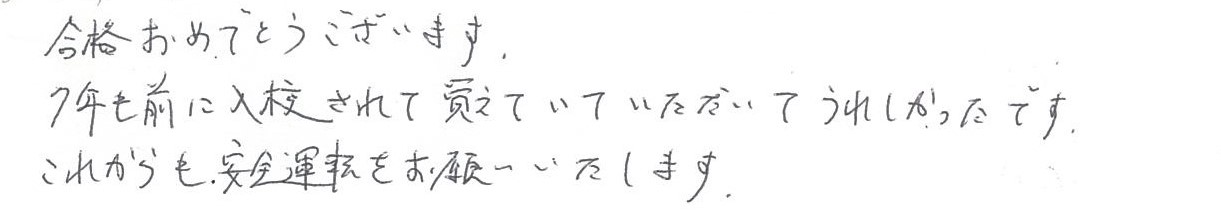 合格おめでとうございます.
7年も前に入校されて覚えていていただいてうれしかったです.
これからも.安全運転をお願いいたします.